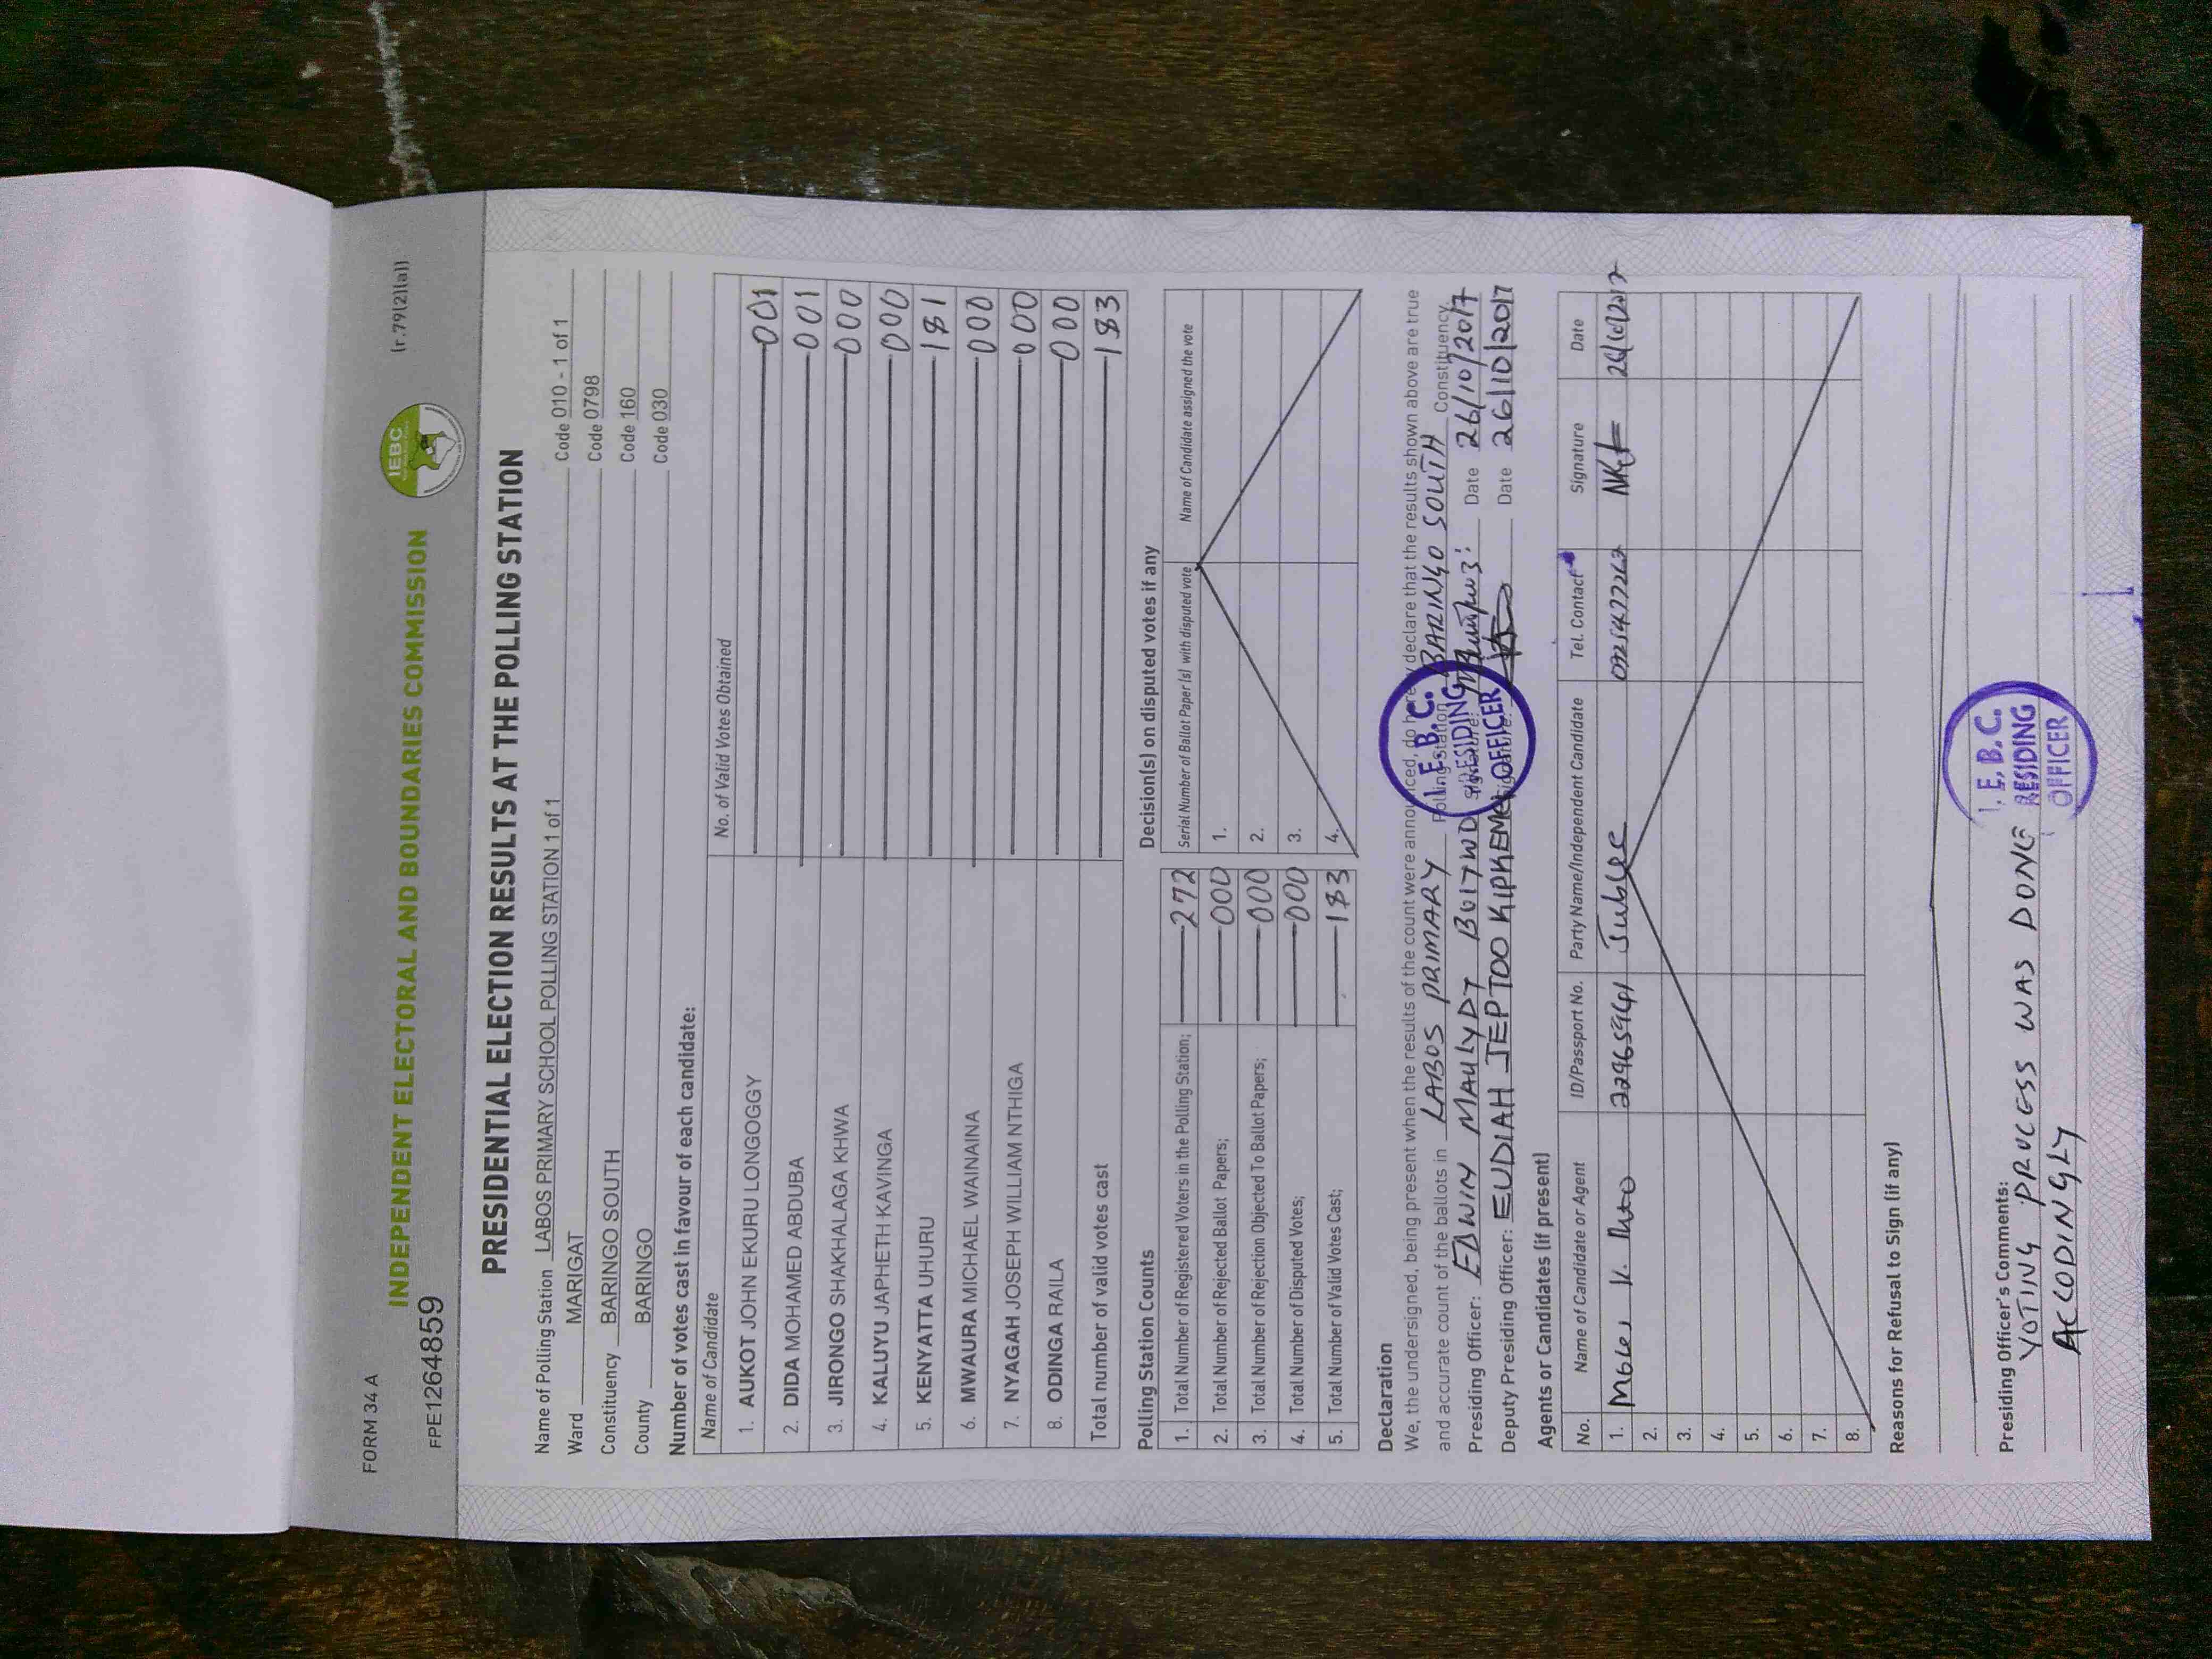 FORM 34 A
(r.79(2)(a))
INDEPENDENT ELECTORAL AND BOUNDARIES COMMISSION
IEBC
FPE1264859
PRESIDENTIAL ELECTION RESULTS AT THE POLLING STATION
Name of Polling Station LABOS PRIMARY SCHOOL POLLING STATION 1 of 1 Code 010 - 1 of 1
Ward MARIGAT Code 0798
Constituency BARINGO SOUTH Code 160
County BARINGO Code 030
Number of votes cast in favour of each candidate:
Name of Candidate No. of Valid Votes Obtained
1. AUKOT JOHN EKURU LONGOGGY 001
2. DIDA MOHAMED ABDUBA 001
3. JIRONGO SHAKHALAGA KHWA 000
4. KALUYU JAPHETH KAVINGA 000
5. KENYATTA UHURU 181
6. MWAURA MICHAEL WAINAINA 000
7. NYAGAH JOSEPH WILLIAM NTHIGA 000
8. ODINGA RAILA 000
Total number of valid votes cast 183
Polling Station Counts
1. Total Number of Registered Voters in the Polling Station; 272
2. Total Number of Rejected Ballot Papers; 000
3. Total Number of Rejection Objected To Ballot Papers; 000
4. Total Number of Disputed Votes; 000
5. Total Number of Valid Votes Cast; 183
Decision(s) on disputed votes if any
Serial Number of Ballot Paper (s) with disputed vote Name of Candidate assigned the vote
1.
2.
3.
4.
Declaration
We, the undersigned, being present when the results of the count were announced, do hereby declare that the results shown above are true
and accurate count of the ballots in LABOS PRIMARY Polling Station BARINGO SOUTH Constituency
Presiding Officer: EDWIN Date 26/10/2017
Deputy Presiding Officer: EUDIAH JEPTOO KIPKEMEI Date 26/10/2017
I.E.B.C.
PRESIDING
OFFICER
Agents or Candidates (if present)
No. Name of Candidate or Agent ID/Passport No. Party Name/Independent Candidate Tel. Contact Signature Date
1. Moses K. Ruto Jubilee 26/10/2017
2.
3.
4.
5.
6.
7.
8.
Reasons for Refusal to Sign (if any)
Presiding Officer's Comments:
VOTING PROCESS WAS DONE
ACCODINGLY
I.E.B.C.
RESIDING
OFFICER